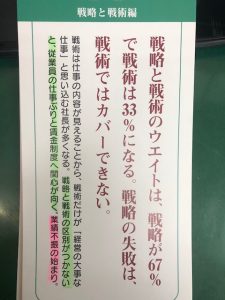 戦略と戦術編
戦略と戦術のウエイトは、戦略が67%
で戦術は33%になる。戦略の失敗は、
戦術ではカバーできない。
戦術は仕事の内容が見えることから、戦術だけが「経営の大事な
仕事」と思い込む社長が多くなる。戦略と戦術の区別がつかない
と、従業員の仕事ぶりと賃金制度へ関心が向く。業績不振の始まり。